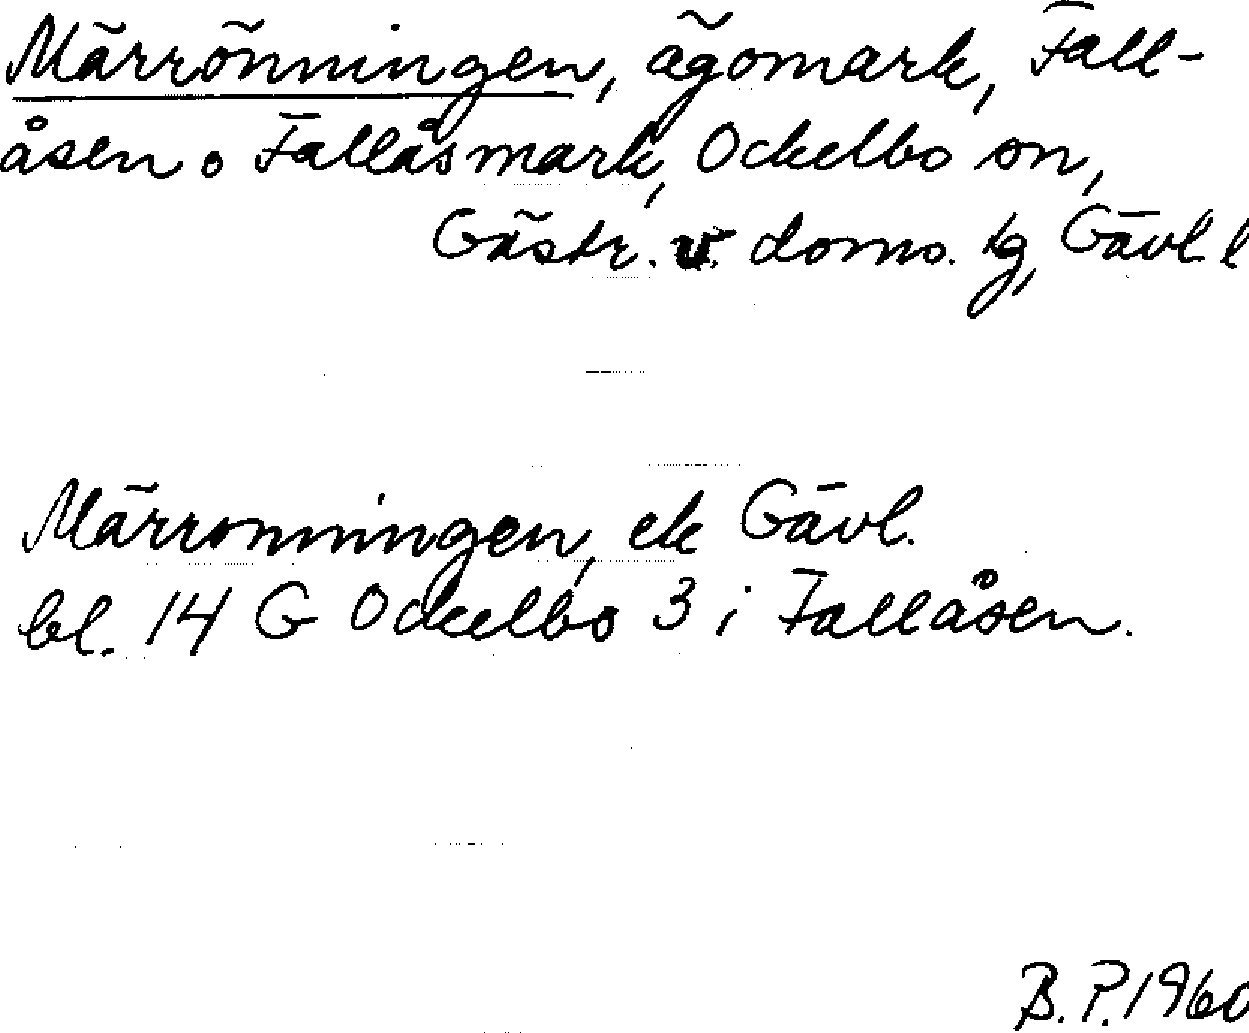 Märrönningen, ägomark, Fall-
åsen o Fallåsmark, Ockelbo sn,
Gästr. v. doms. tg, Gävl. l
Märronningen, ek Gävl.
bl. 14 G Ockelbo 3 i Fallåsen.
B. P. 1960